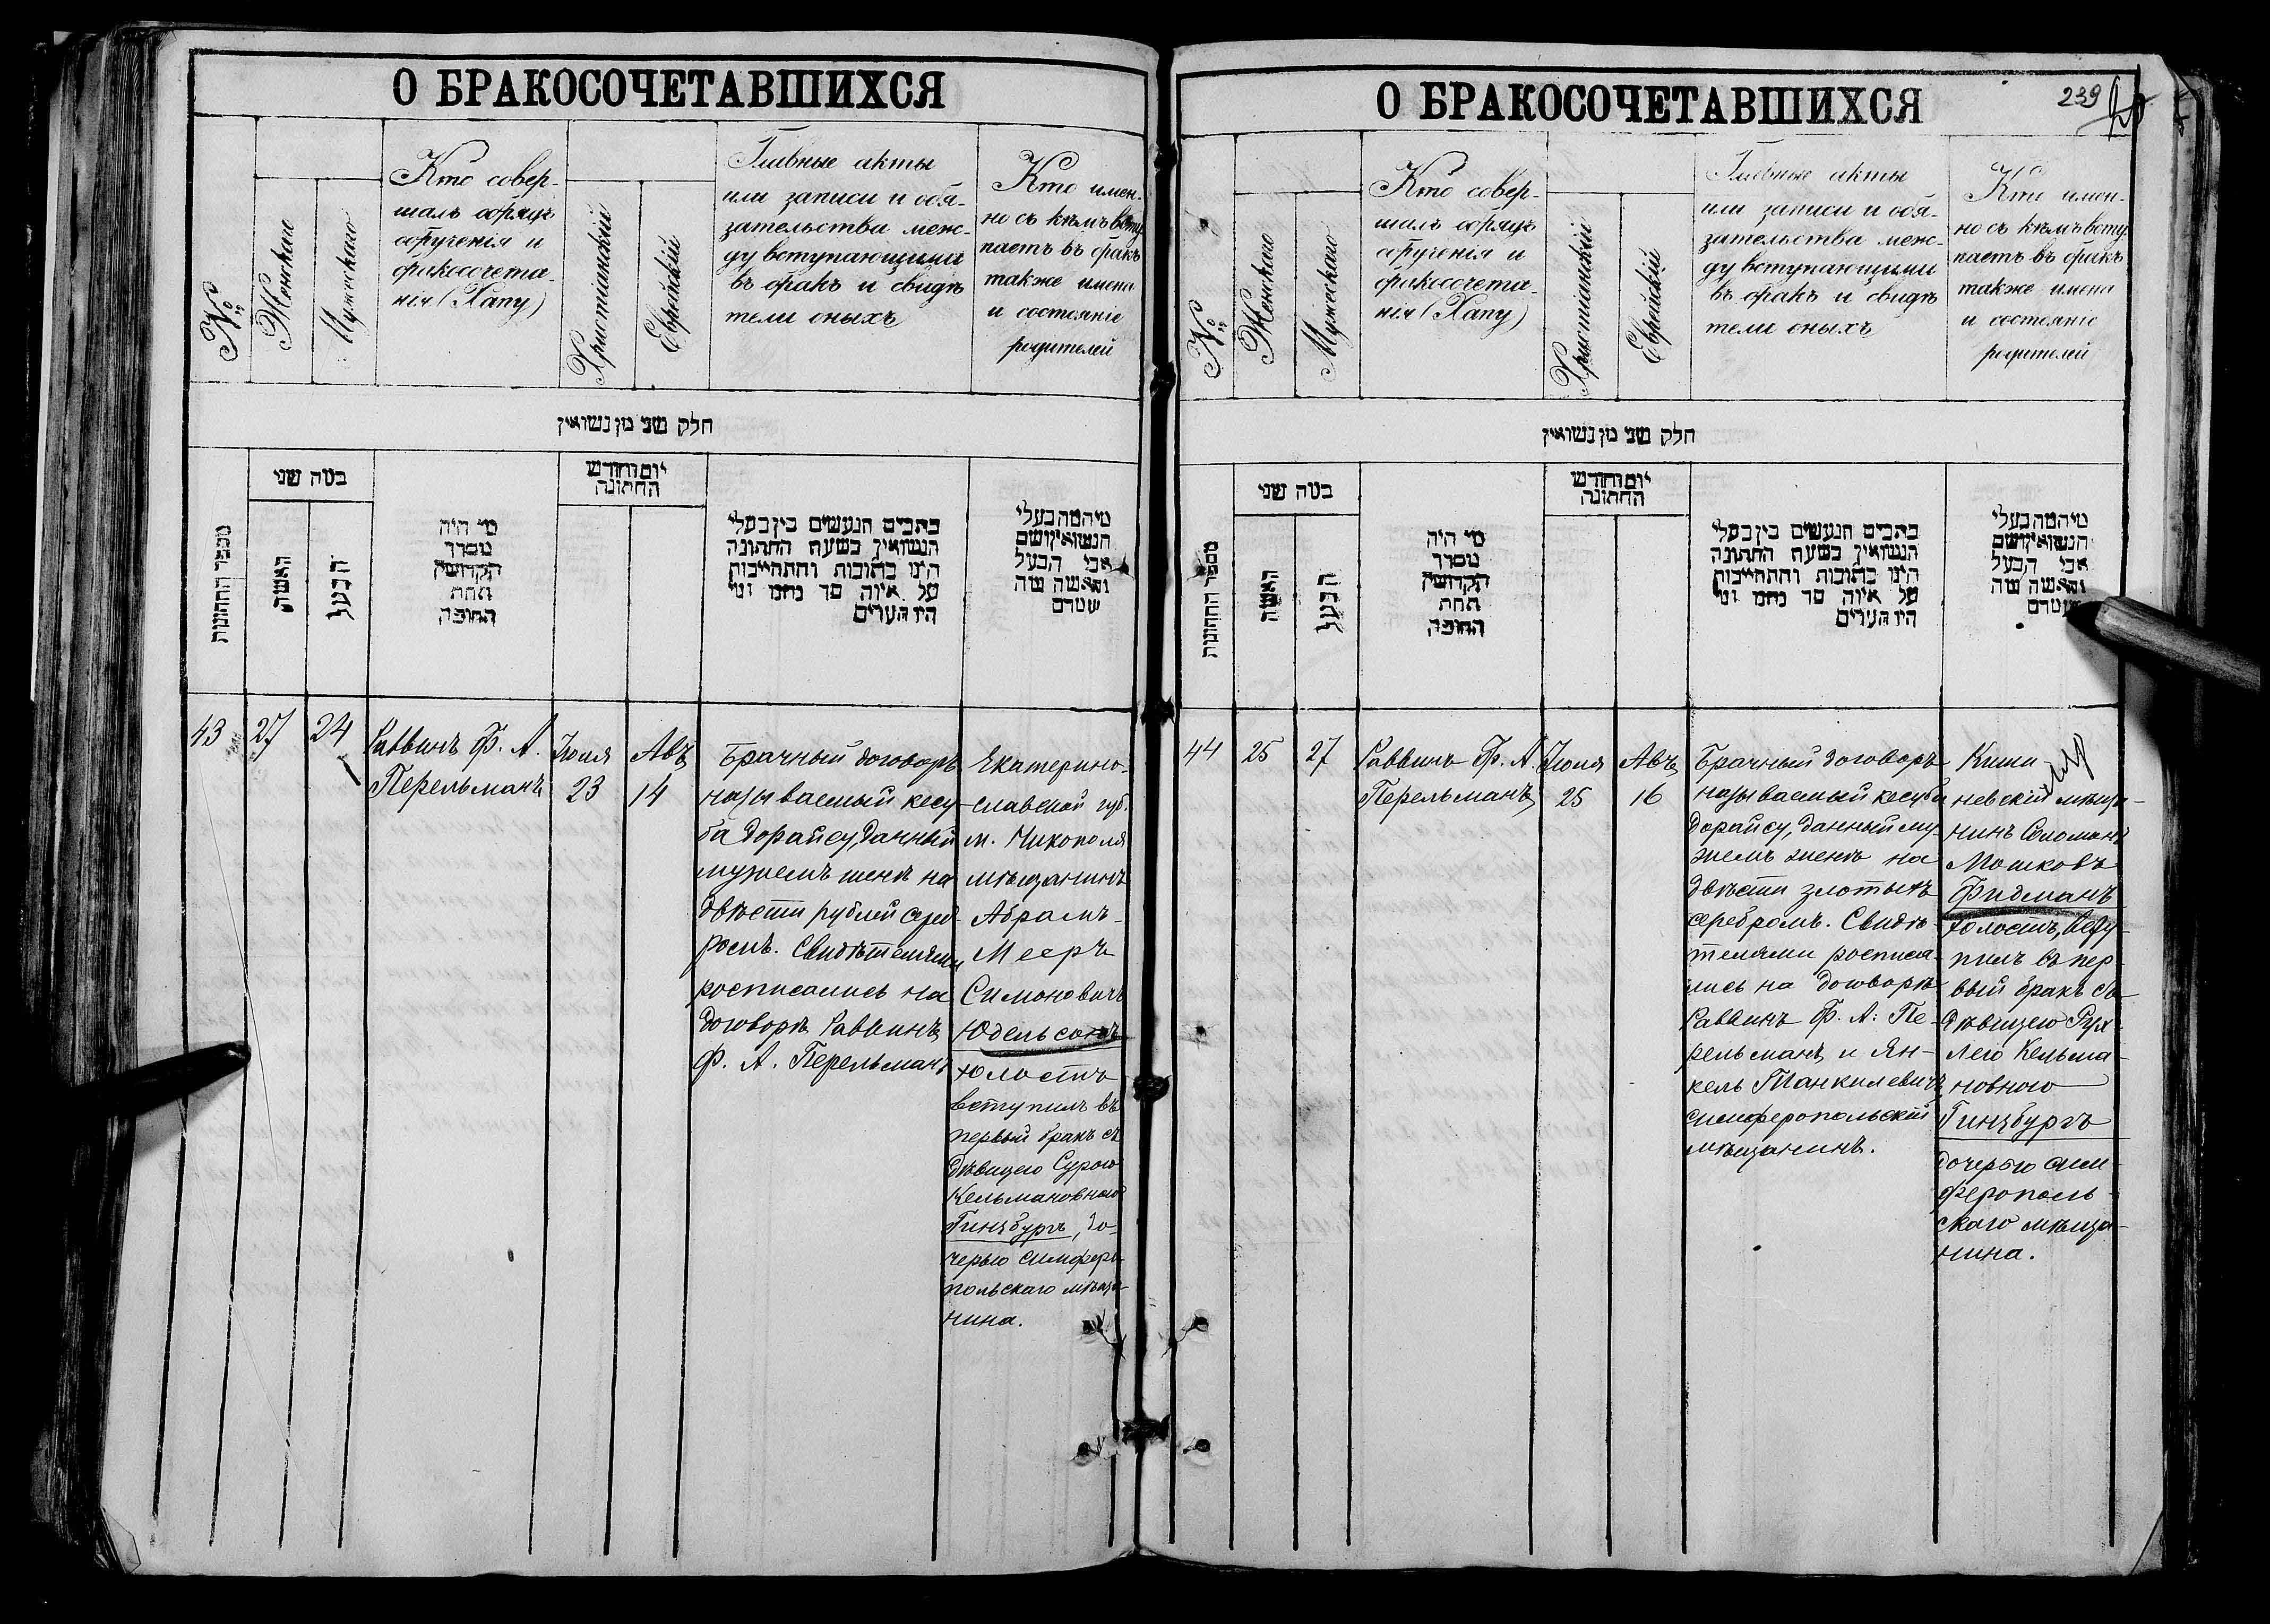 О БРАКОСОЧЕТАВШИХСЯ
№
Женскаго
Мужескаго
Кто совер-
шалъ обрядъ
обрученія и
бракосочета-
нія (Хапу)
Христіанскій
Еврейскій
Главные акты
или записи и обя-
зательства меж-
ду вступающими
въ бракъ и свидѣ
тели оныхъ
Кто имен-
но съ кѣмъ всту
паетъ въ бракъ
также имена
и состояніе
родителей
חלק שני מן נשואין
מספר החתונות
כמה שני
האשה
הבעל
מי היה
מסדר
הקדושין
תחת
החופה
יום וחודש
החתונה
כתבים הנעשים בין בעלי
הנשואין בשעת החתונה
היינו כתובות והתחייבות
על איזה סך נתנו ומי
היו העדים
מי המה בעלי
הנשואין ושם
אבי הבעל
והאשה שה
שטדם
43
27
24
Раввинъ Ф. А.
Перельманъ
Іюля
23
Авъ
14
Брачный договоръ
называемый кесу-
ба дорайсу, данный
мужемъ женѣ на
двѣсти рублей сереб-
ромъ. Свидѣтелями
росписались на
договорѣ Раввинъ
Ф. А. Перельманъ
Екатерино-
славской губ.
м. Никополя
мѣщанинъ
Абрамъ-
Мееръ
Симоновичъ
Юдельсонъ
холостъ
вступилъ въ
первый бракъ съ
дѣвицею Сурою
Кельмановною
Гинзбургъ, до-
черью симферо-
польскаго мѣща-
нина.
О БРАКОСОЧЕТАВШИХСЯ
239
№
Женскаго
Мужескаго
Кто совер-
шалъ обрядъ
обрученія и
бракосочета-
нія (Хапу)
Христіанскій
Еврейскій
Главные акты
или записи и обя-
зательства меж-
ду вступающими
въ бракъ и свидѣ
тели оныхъ
Кто имен-
но съ кѣмъ всту
паетъ въ бракъ
также имена
и состояніе
родителей
חלק שני מן נשואין
מספר החתונות
כמה שני
האשה
הבעל
מי היה
מסדר
הקדושין
תחת
החופה
יום וחודש
החתונה
כתבים הנעשים בין בעלי
הנשואין בשעת החתונה
היינו כתובות והתחייבות
על איזה סך נתנו ומי
היו העדים
מי המה בעלי
הנשואין ושם
אבי הבעל
והאשה שה
שטדם
44
25
27
Раввинъ Ф. А.
Перельманъ
Іюля
25
Авъ
16
Брачный договоръ
называемый кесуба
дорайсу, данный му-
жемъ женѣ на
двѣсти злотыхъ
серебромъ. Свидѣ-
телями росписа-
лись на договорѣ
Раввинъ Ф. А. Пе-
рельманъ и Ян-
кель Манкилевичъ
симферопольскій
мѣщанинъ.
Киши-
невскій мѣща-
нинъ Соломонъ
Мошковъ
Фидманъ
холостъ, всту-
пилъ въ пер-
вый бракъ съ
дѣвицею Рух-
лею Кельма-
новною
Гинзбургъ
дочерью сим-
ферополь-
скаго мѣща-
нина.